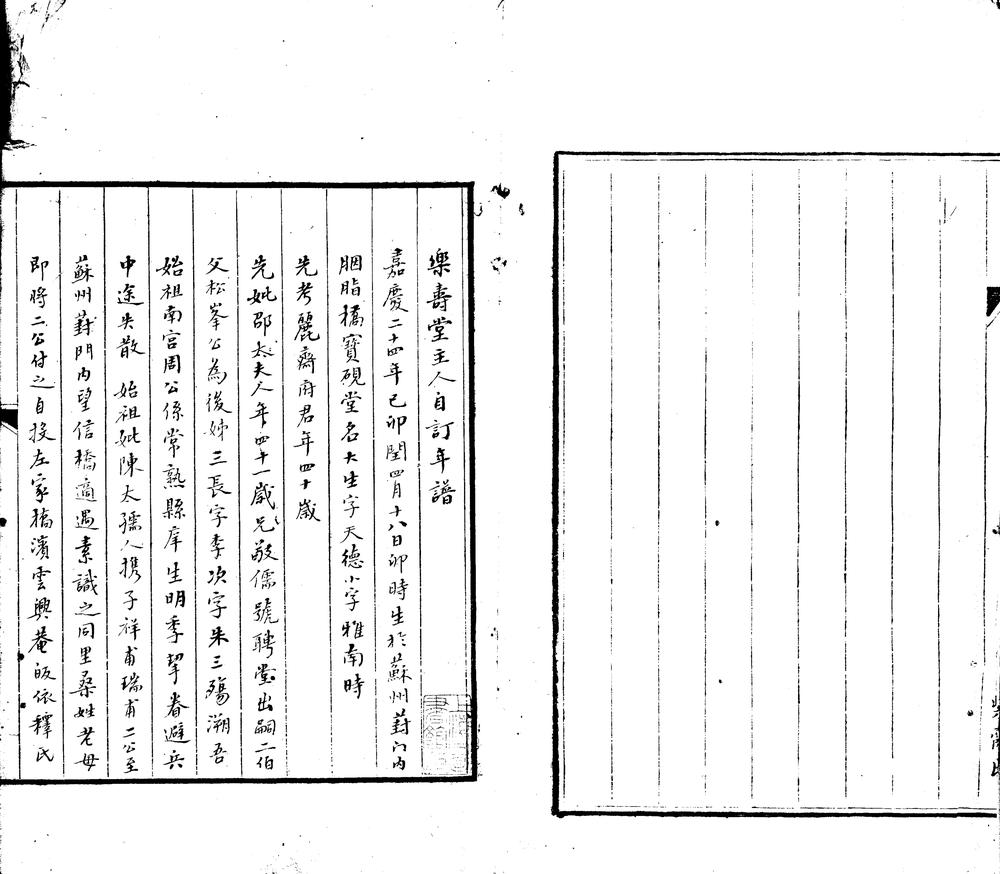 樂壽堂主人自訂年譜
嘉慶二十四年己卯閏四月十八日卯時生於蘇州葑門內
胭脂橋寶硯堂名大生字天德小字雅南時
先考麗齋府君年四十歲
先妣邵太夫人年四十一歲兄敬儒號聘堂出嗣二伯
父松峯公為後姊三長字李次字朱三殤溯吾
始祖南宫周公係常熟縣庠生明季挈眷避兵
中途失散 始祖妣陳太孺人携子祥甫瑞甫二公至
蘇州葑門內望信橋適遇素識之同里桑姓老母
即將二公付之自投左家橋濱雲興菴皈依釋氏